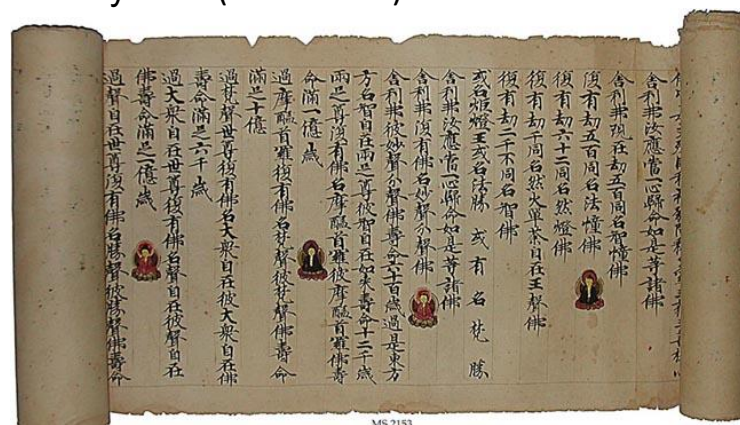 舍利弗汝應當一心歸命如是等諸佛
舍利弗現在劫五百同名智幢佛
復有劫五百同名法幢佛
復有劫六十二同名然燈佛
復有劫千同名然火單荼自在王聲佛
復有劫二千不同名智佛
或名炬燈王或名法勝 或有名梵勝
舍利弗汝應當一心歸命如是等諸佛
舍利弗復有佛名妙聲分聲佛
舍利弗彼妙聲分聲佛壽命六十百歲過是東方
方名智自在兩足尊彼智自在如來壽命十二千歲
兩足尊復有佛名摩醯首羅彼摩醯首羅佛壽
命滿一億歲
過摩醯首羅復有佛名梵聲彼梵聲佛壽命
滿足十億
過梵聲世尊復有佛名大衆自在彼大衆自在佛
壽命滿足六千歲
過大衆自在世尊復有佛名聲自在彼聲自在
佛壽命滿足一億歲
過聲自在世尊復有佛名勝聲彼勝聲佛壽命
MS 2153